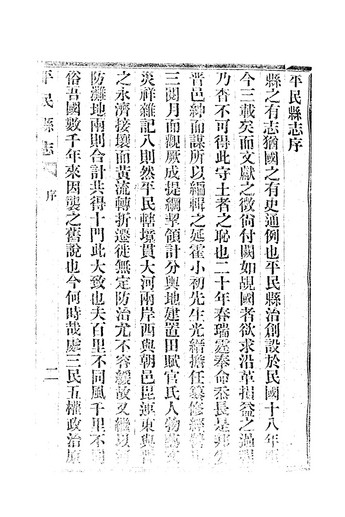 平民縣志序
縣之有志猶國之有史通例也平民縣治創設於民國十八年
今三載矣而文獻之徵尙付闕如覘國者欲求沿革損益之過程
乃杳不可得此守土者之恥也二十年春瑞霆奉命忝長是邦
晋邑紳而謀所以編輯之延霍小初先生光縉擔任纂修經營
三閱月而觀厥成提綱挈領計分輿地建置田賦官氏人物藝文
災祥雜記八則然平民轄境貫大河兩岸西與朝邑毘連東與晋
之永濟接壤而黃流轉折遷徙無定防治尤不容緩故又繼以河
防灘地兩則合計共得十門此大致也夫百里不同風千里不同
俗吾國數千年來因襲之舊說也今何時哉處三民五權政治原
平民縣志
序
二